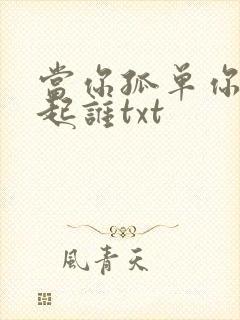 當你孤单你
起誰txt
風青天